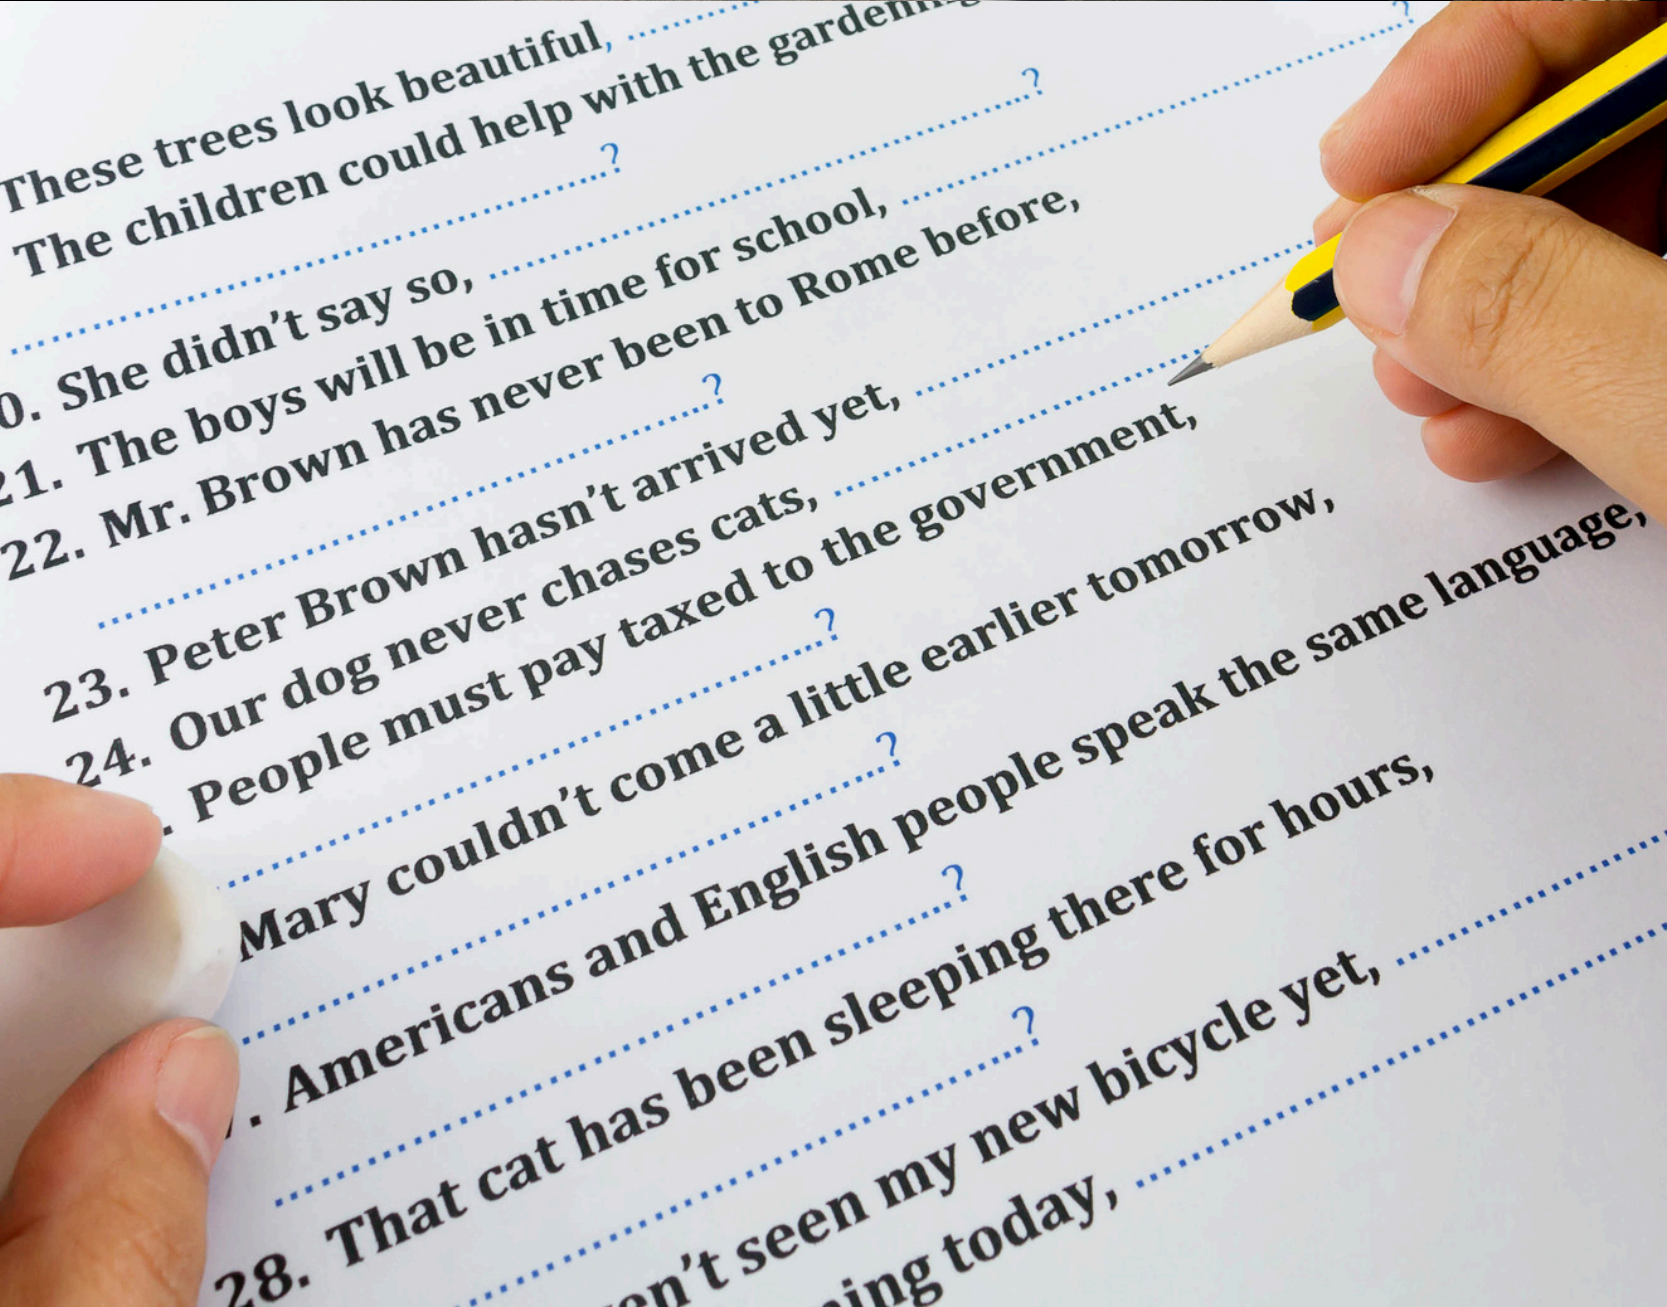 These trees look beautiful, ..........
The children could help with the gardening
..........?
0. She didn't say so, ..........?
21. The boys will be in time for school, ..........?
22. Mr. Brown has never been to Rome before,
..........?
23. Peter Brown hasn't arrived yet, ..........
24. Our dog never chases cats, ..........
. People must pay taxed to the government,
..........?
Mary couldn't come a little earlier tomorrow,
..........?
. Americans and English people speak the same language,
..........?
28. That cat has been sleeping there for hours,
..........?
seen my new bicycle yet, ..........
today, ..........